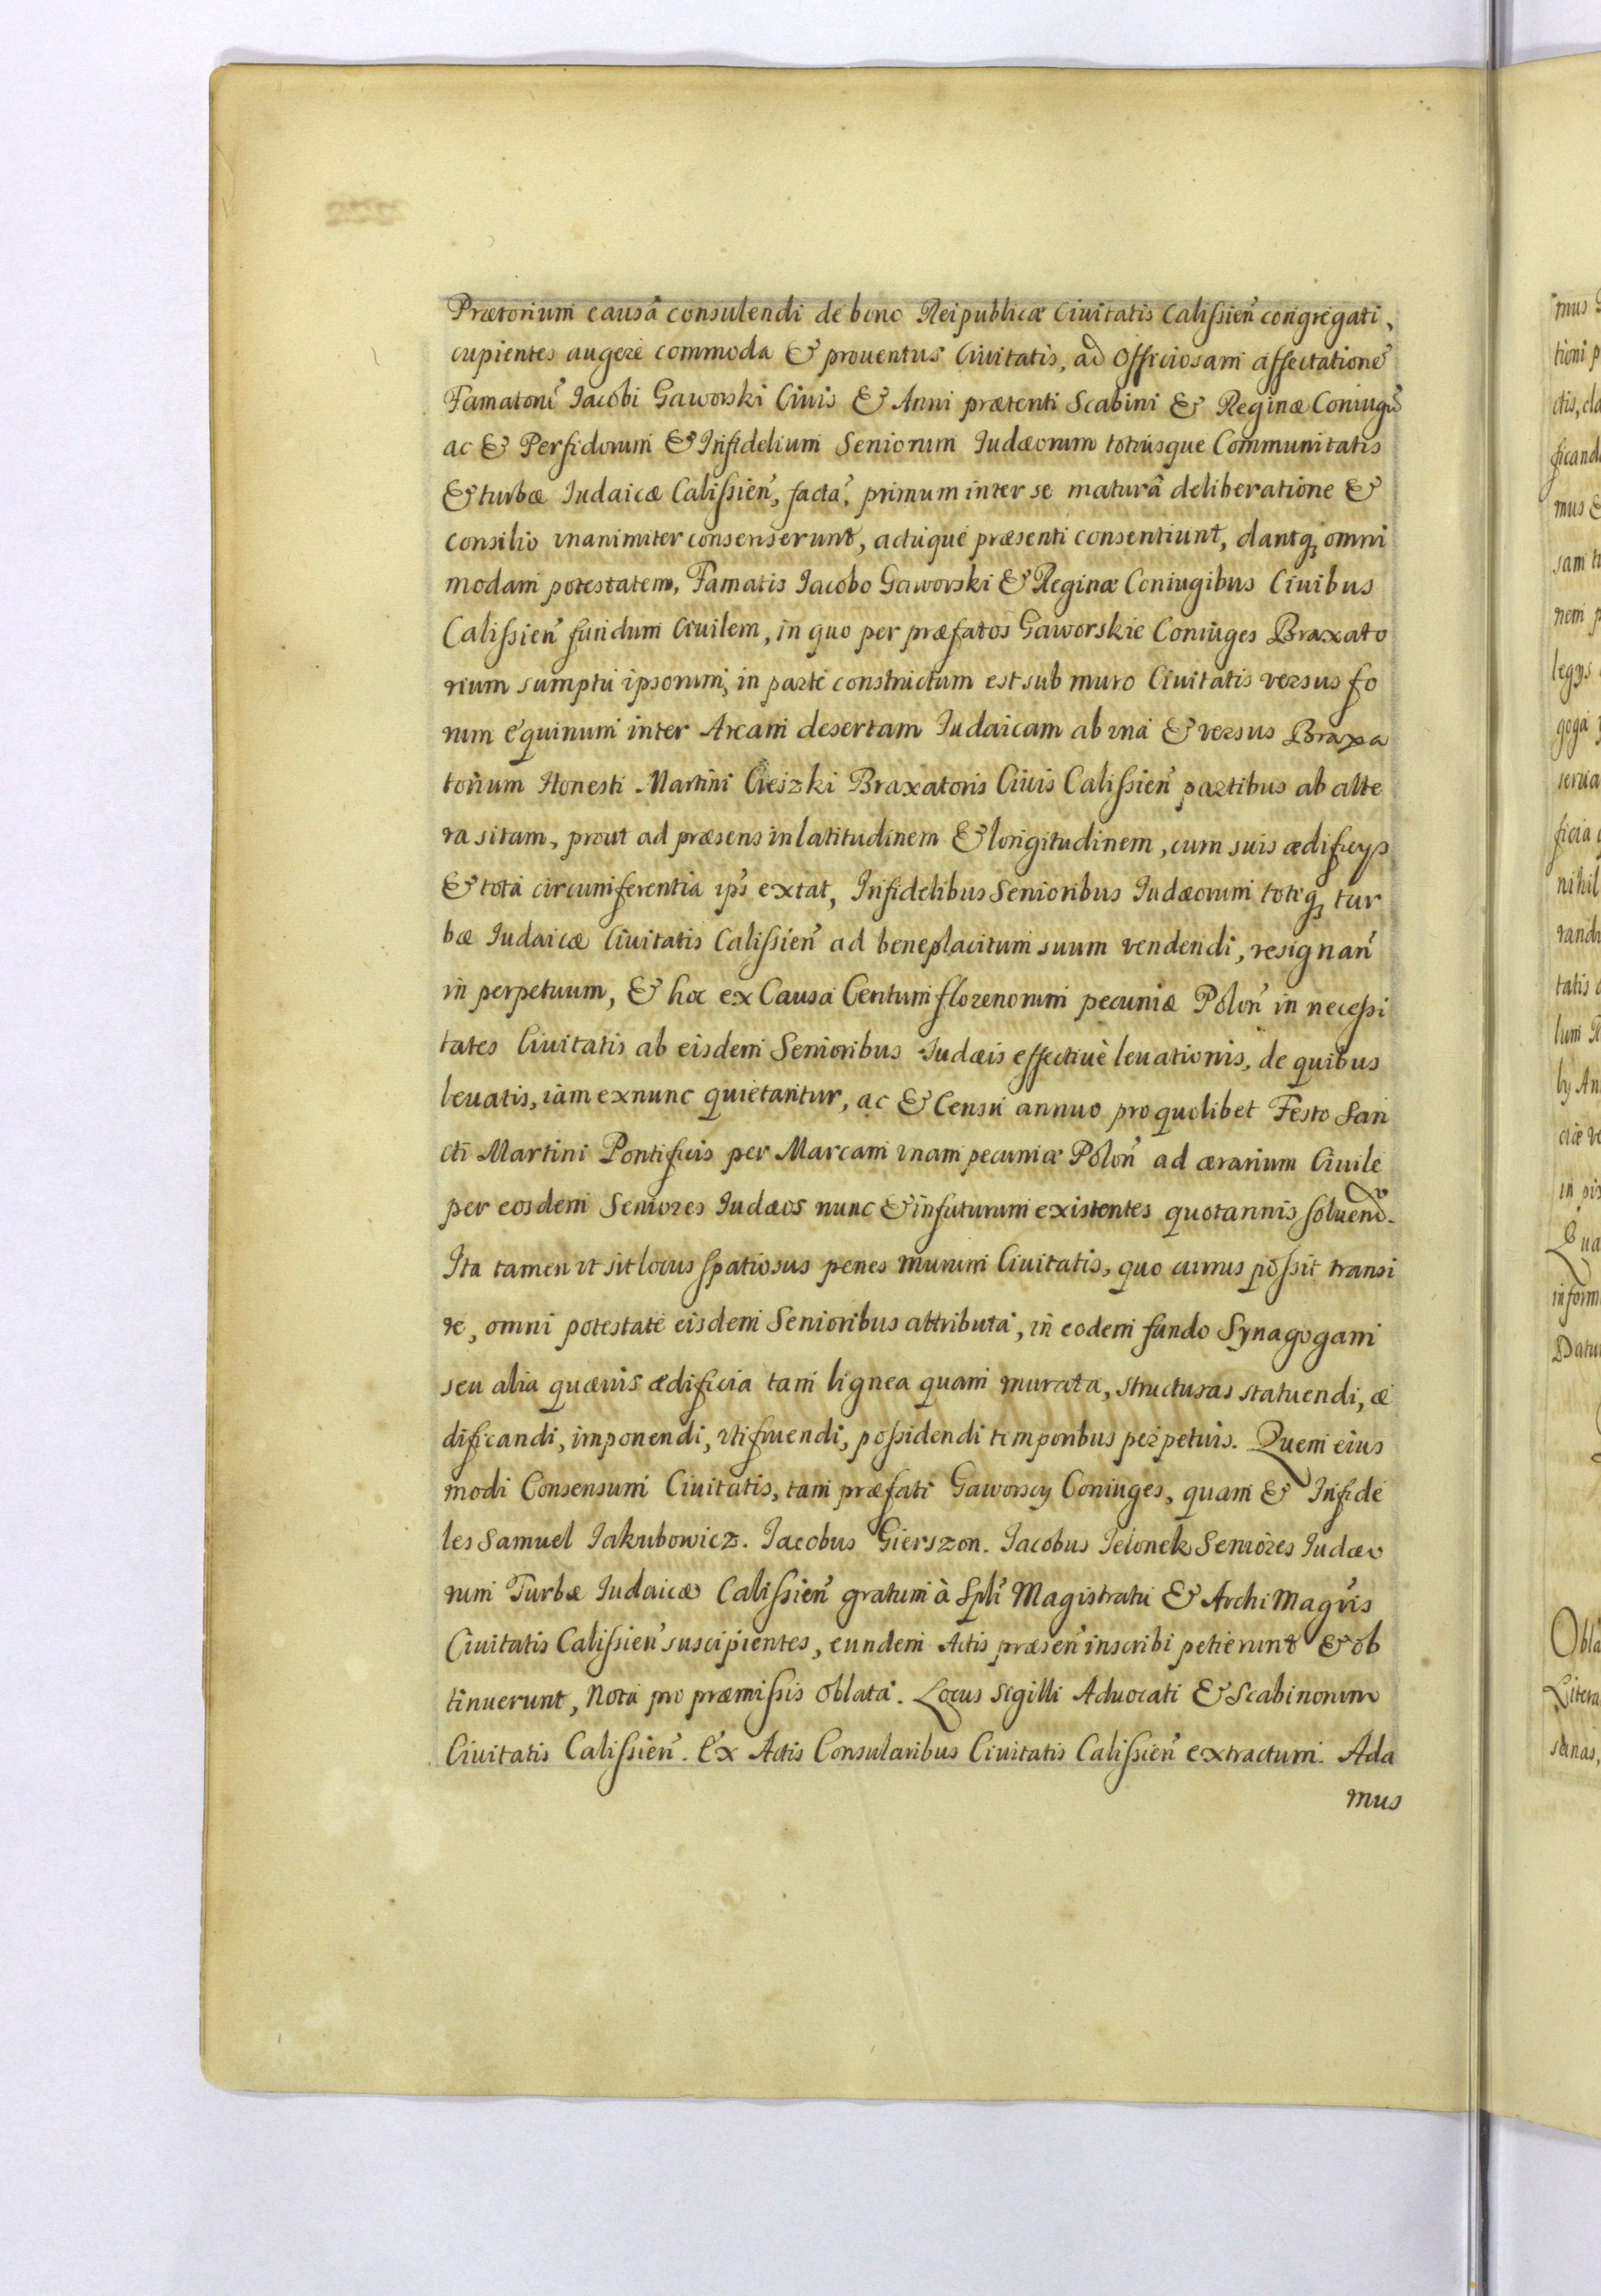 Prætorium causâ consulendi de bono Reipublicæ Ciuitatis Calissien̄ congregati,
cupientes augere commoda & prouentus Ciuitatis, ad Officiosam affectationē
Famatorū Iacobi Gaworski Ciuis & Anni præteriti Scabini & Reginæ Coniugū
ac & Perfidorum & Infidelium Seniorum Iudæorum totiusque Communitatis
& turbæ Iudaicæ Calissien̄, factā, primum inter se maturâ deliberatione &
consilio vnanimiter consenserunt, actuque præsenti consentiunt, dantq3 omni
modam potestatem, Famatis Iacobo Gaworski & Reginæ Coniugibus Ciuibus
Calissien̄ fundum Ciuilem, in quo per præfatos Gaworskie Coniuges Braxato
rium sumptu ipsorum, in parte constructum est sub muro Ciuitatis versus fo
rum equinum inter Aream desertam Iudaicam ab vna & versus Braxa
torium Honesti Martini Cieszki Braxatoris Ciuis Calissien̄ partibus ab alte
ra sitam, prout ad præsens in latitudinem & longitudinem, cum suis ædificijs
& tota circumferentia ip̄s extat, Infidelibus Senioribus Iudæorum totiq3 tur
bæ Iudaicæ Ciuitatis Calissien̄ ad beneplacitum suum vendendi, resignan̄
in perpetuum, & hoc ex Causa Centum florenorum pecuniæ Polon̄ in necessi
tates Ciuitatis ab eisdem Senioribus Iudæis effectiuè leuationis, de quibus
leuatis, iam exnunc quietantur, ac & Censu annuo pro quolibet Festo San
cti Martini Pontificis per Marcam vnam pecuniæ Polon̄ ad ærarium Ciuile
per eosdem Seniores Iudæos nunc & in futurum existentes quotannis soluendo.
Ita tamen vt sit locus spatiosus penes murum Ciuitatis, quo currus possit transi
re, omni potestate eisdem Senioribus attributa, in eodem fundo Synagogam
seu alia quæuis ædificia tam lignea quam murata, structuras statuendi, æ
dificandi, imponendi, vtifruendi, possidendi temporibus perpetuis. Quem eius
modi Consensum Ciuitatis, tam præfati Gaworscy Coniuges, quam & Infide
les Samuel Iakubowicz. Iacobus Gierszon. Iacobus Ielonek Seniores Iudæo
rum Turbæ Iudaicæ Calissien̄ gratum à Spl̄i Magistratu & ArchiMagr̄is
Ciuitatis Calissien̄ suscipientes, eundem Actis præsen̄ inscribi petierunt & ob
tinuerunt, Nota pro præmissis oblata. Locus Sigilli Aduocati & Scabinorum
Ciuitatis Calissien̄. Ex Actis Consularibus Ciuitatis Calissien̄ extractum. Ada
mus